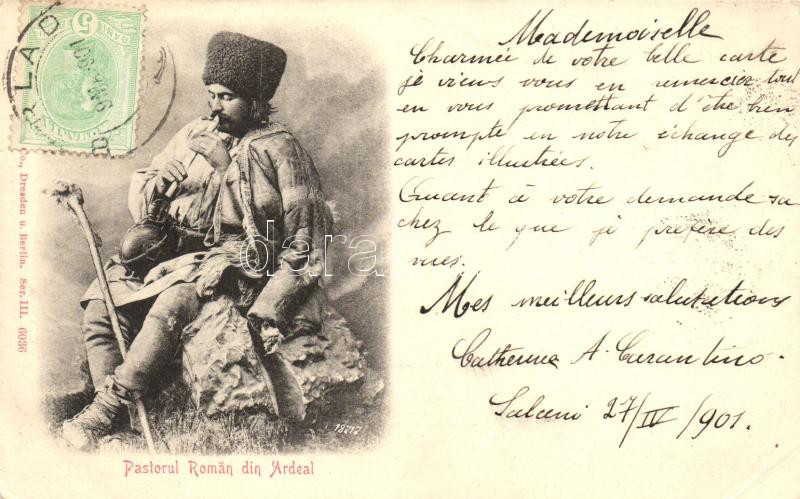 5
BANI
BÂRLAD
Co., Dresden u. Berlin. Ser. III. 6036
18217
Pastorul Român din Ardeal
darabanth
Mademoiselle
Charmée de votre belle carte
je viens vous en remercier tout
en vous promettant d'être bien
prompte en notre échange des
cartes illustrées.
Quant à votre demande sa
chez le que je préfère des
vues.
Mes meilleurs salutations
Catherina A. Carantino.
27/IV/901.